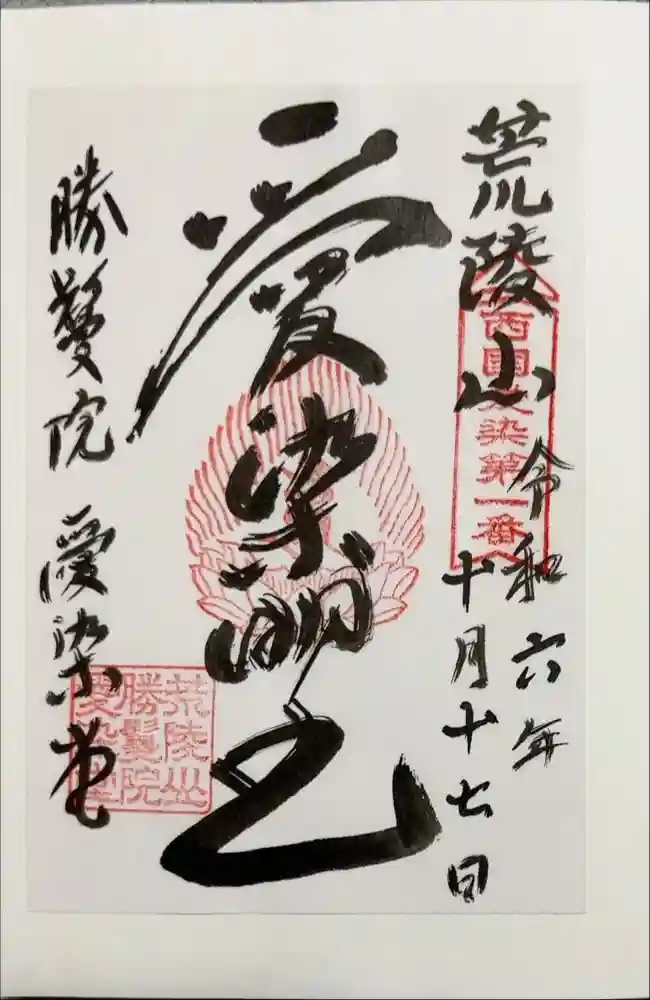 荒陵山
西國愛染第一番
令和六年
十月十七日
愛染明王
勝鬘院 愛染堂
荒陵山
勝鬘院
愛染堂